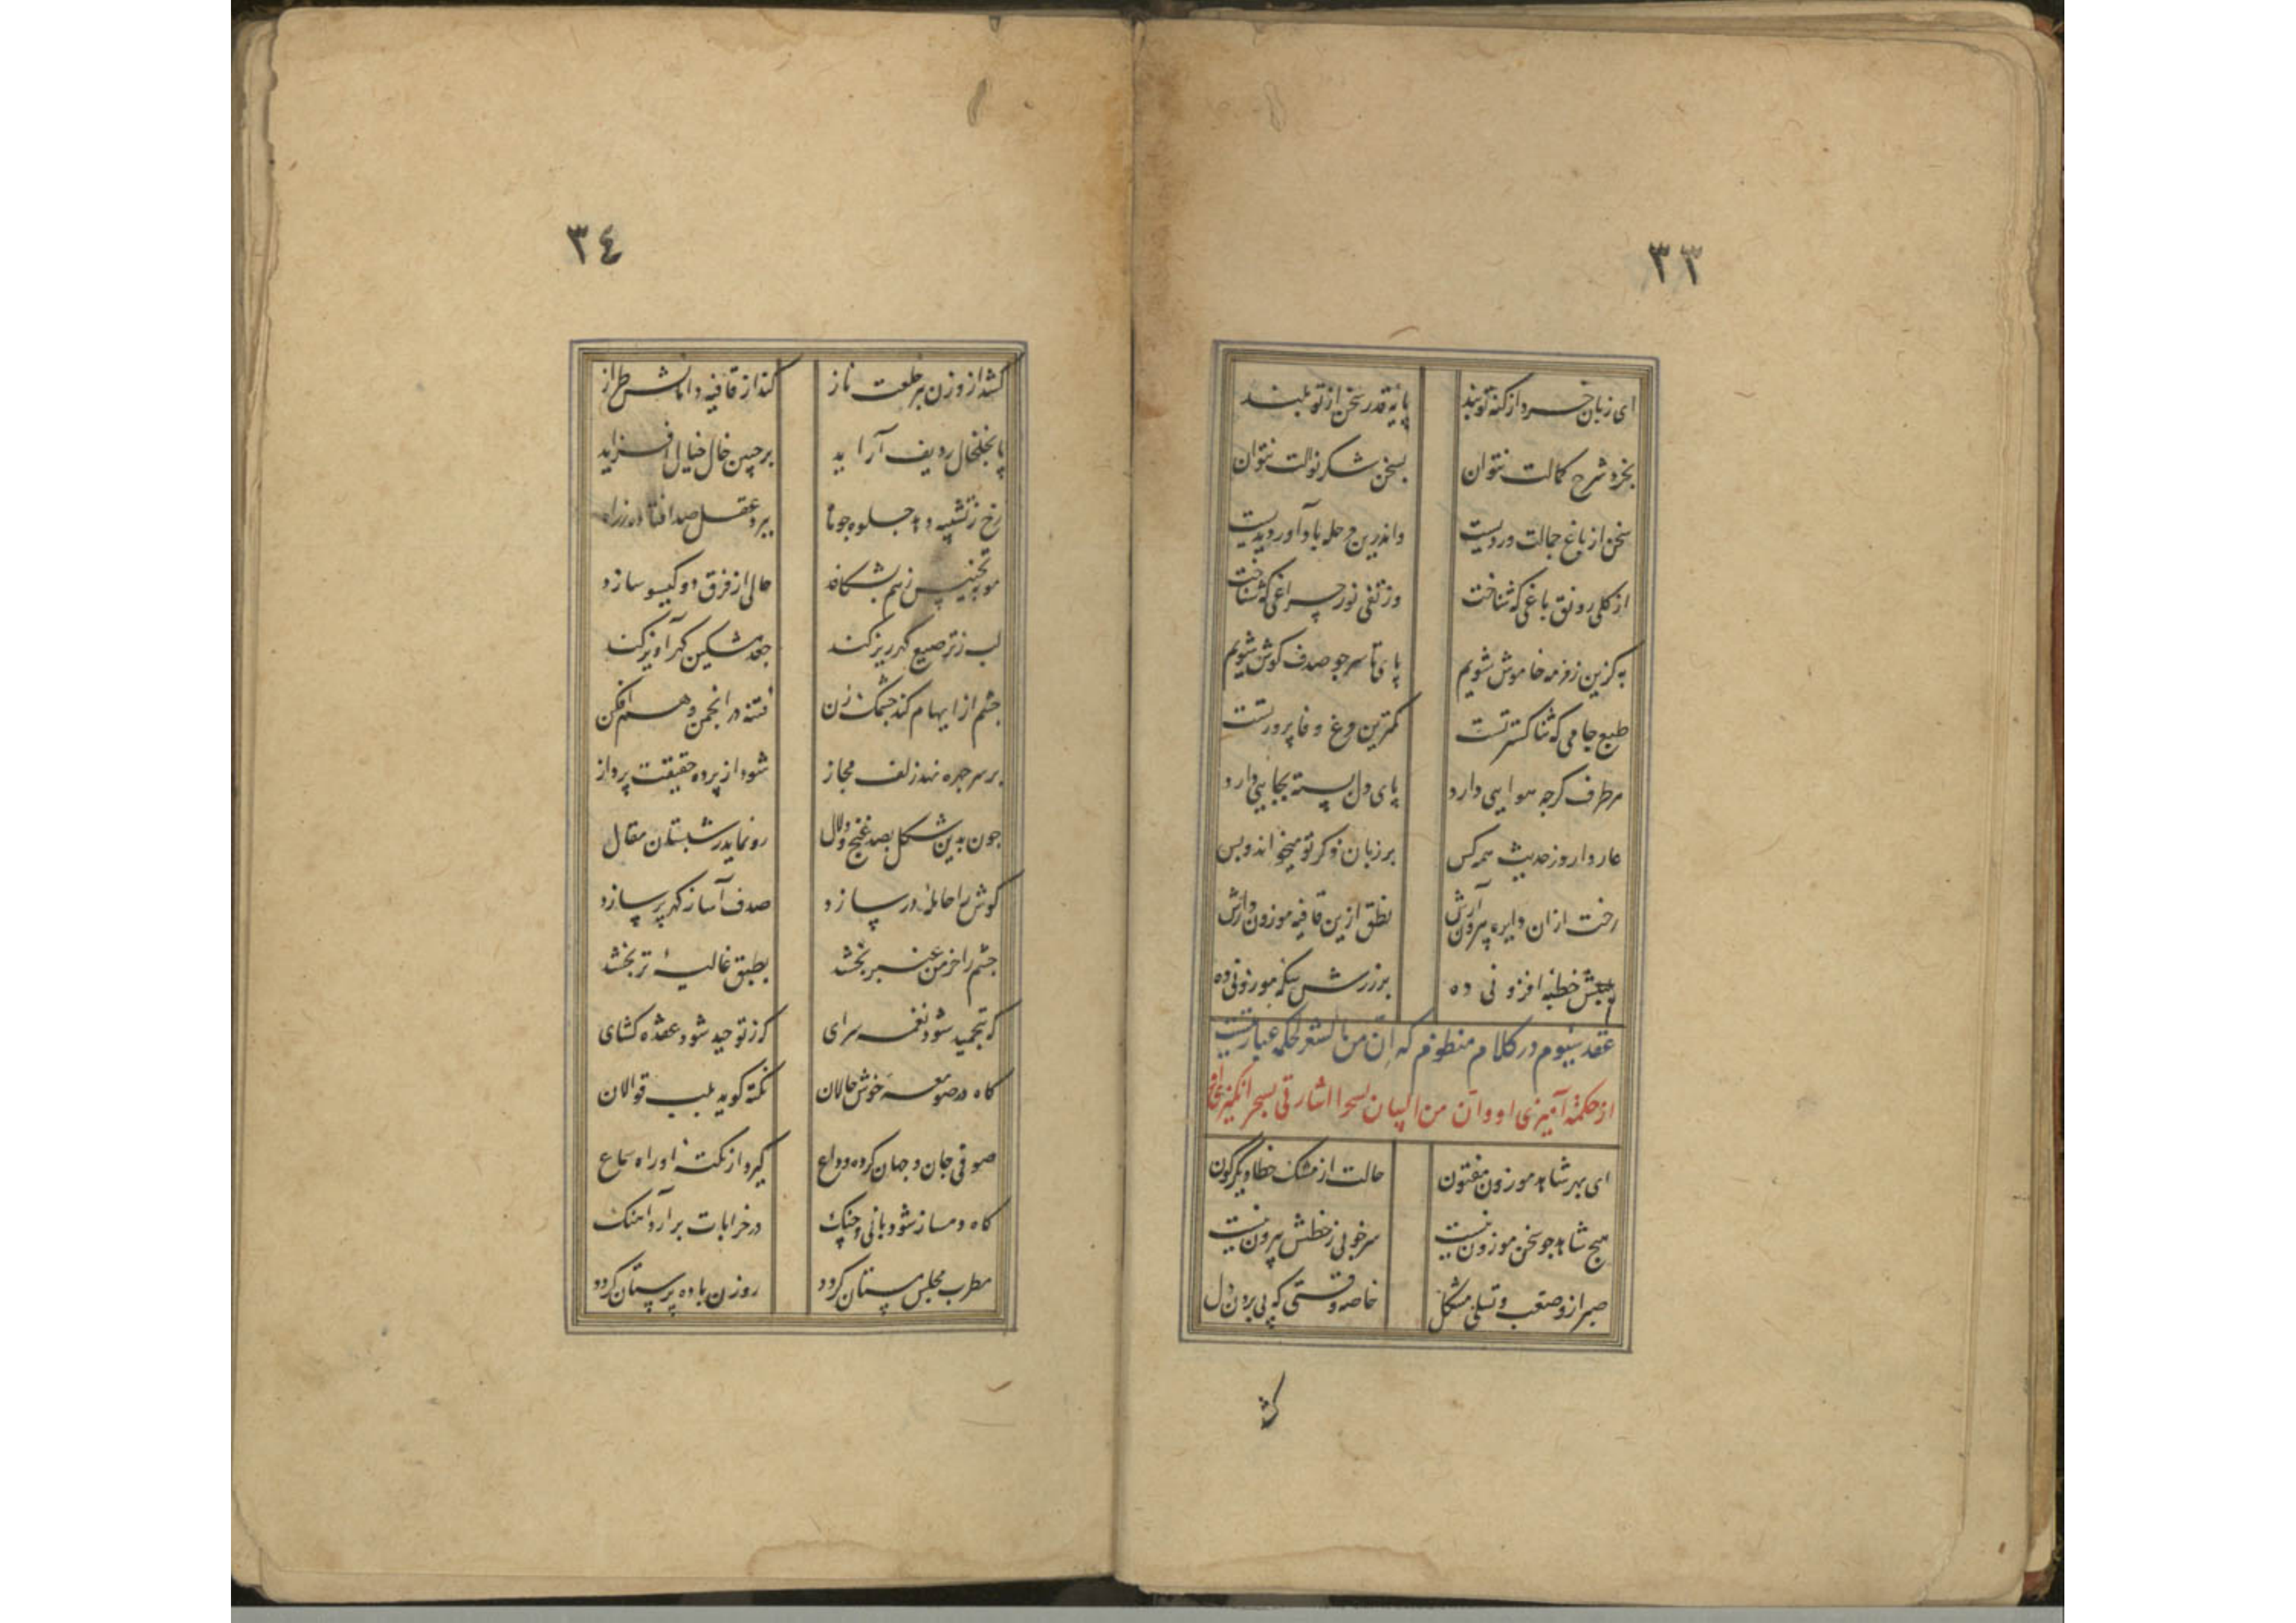 ٣٣
ای زبان خرد از کنه تو بند پایه قدر سخن از تو بلند
بخرد شرح کمالت نتوان بسخن شکر نوالت نتوان
سخن از باغ جمالت وردیست واندرین مرحله باد آوردیست
از کلی رونق باغی که شناخت وز تفی نور چراغی که شناخت
به کزین زمزمه خاموش شویم پای تا سر جو صدف کوش شویم
طبع جامی که ثنا کستر تست کمترین مرغ وفا پرور تست
هر طرف کرچه هوایی دارد پای دل بسته بجایی دارد
عار دارد ز حدیث همه کس بر زبان ذکر تو میخواند و بس
رخت ازان دایره بیرون آرش نطق ازین قافیه موزون دارش
خطبه افزونی ده بر زرش سکه موزونی ده
عقد سیوم در کلام منظوم که ان من الشعر لحکمه عبارتیست
از حکمة آمیزی او و ان من البیان لسحرا اشارتی بسحر انگیزی او
ای بهر شاهد موزون مفتون حالت از مشک خطا دیگرگون
هیچ شاهد جو سخن موزون نیست سر خوبی ز خطش بیرون نیست
صبر ازو صعب و تسلی مشکل خاصه وقتی که پی بردن دل
کشد
٣٤
کشد از وزن ببر خلعت ناز کند از قافیه دامانش طراز
پا بخلخال ردیف آراید بر جبین خال خیال افزاید
رخ ز تشبیه دهد جلوه جو ماه ببرد عقل صد افتاده ز راه
مو به تجنیس ز هم بشکافد خالی از فرق دو کیسو سازد
لب ز ترصیع گهرریز کند جعد مشکین کهر آویز کند
چشم از ایهام کند چشمک زن فتنه در انجمن وهم افکن
بر سر چهره نهد زلف مجاز شود از پرده حقیقت پرداز
جون بدین شکل بصد غنج و دلال رو نماید بشبستان مقال
کوش را حامله در سازد صدف آسا ز کهر پر سازد
چشم را خرمن عنبر بخشد بطبق غالیهٔ تر بخشد
که بتحمید شود نغمه سرای کز توحید شود عقده کشای
کاه در صومعه خوش حالان نکته کوید بلب قوالان
صوفی جان و جهان کرده وداع کیرد از نکته او راه سماع
کاه دمساز شود با نی و چنک در خرابات برآرد آهنک
مطرب مجلس مستان کردد روزن باده پرستان کردد